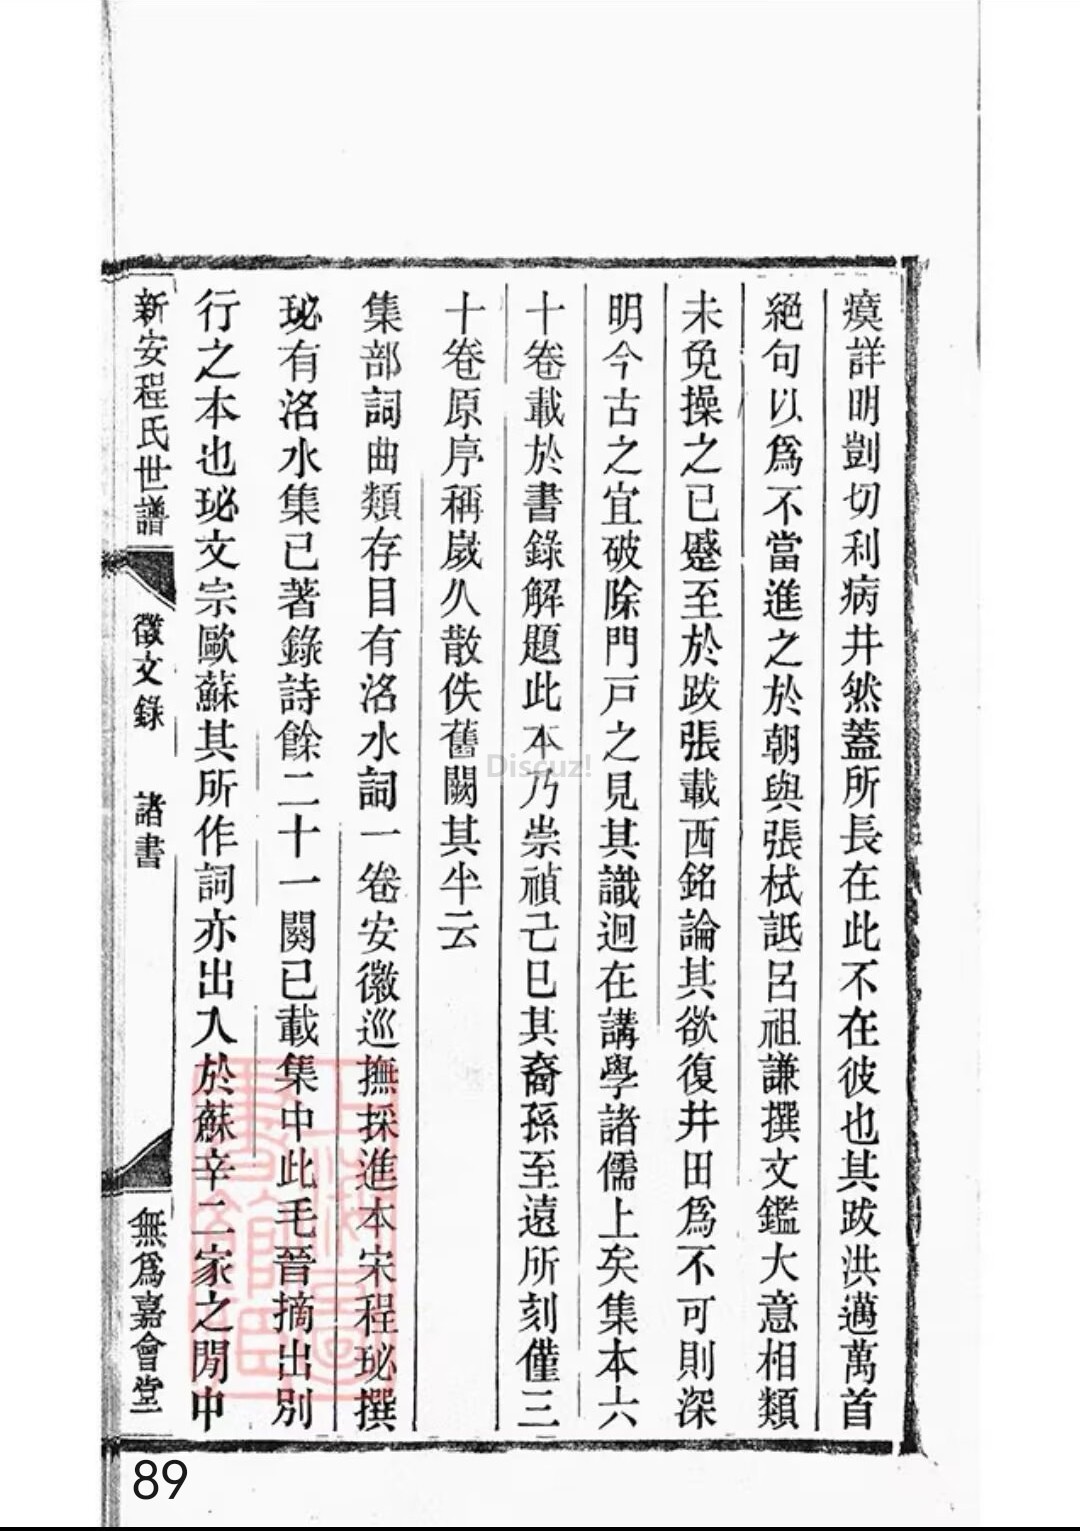 瘼詳明剴切利病井然蓋所長在此不在彼也其跋洪邁萬首
絕句以爲不當進之於朝與張栻詆呂祖謙撰文鑑大意相類
未免操之已蹙至於跋張載西銘論其欲復井田爲不可則深
明今古之宜破除門戶之見其識迥在講學諸儒上矣集本六
十卷載於書錄解題此本乃崇禎己巳其裔孫至遠所刻僅三
十卷原序稱嵗久散佚舊闕其半云
集部詞曲類存目有洺水詞一卷安徽巡撫採進本宋程珌撰
珌有洺水集已著錄詩餘二十一闋已載集中此毛晉摘出別
行之本也珌文宗歐蘇其所作詞亦出入於蘇辛二家之閒中
新安程氏世譜 徵文錄 諸書 無爲嘉會堂
Discuz!
89